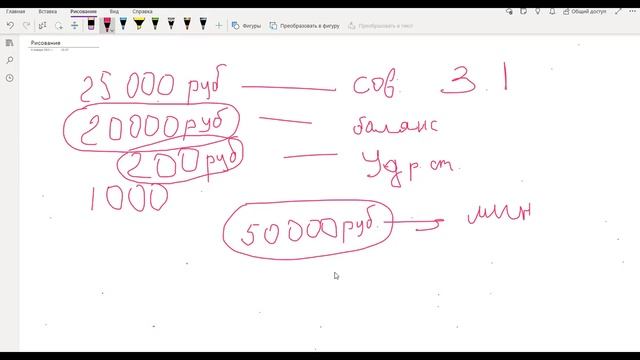 Главная Вставка Рисование Вид Справка Общий доступ
Фигуры Преобразовать в фигуру Преобразовать в текст
Рисование
25 000 руб — сов. 3.1
20000руб — баланс
200руб — Удр.ст.
1000
50000руб. → мин